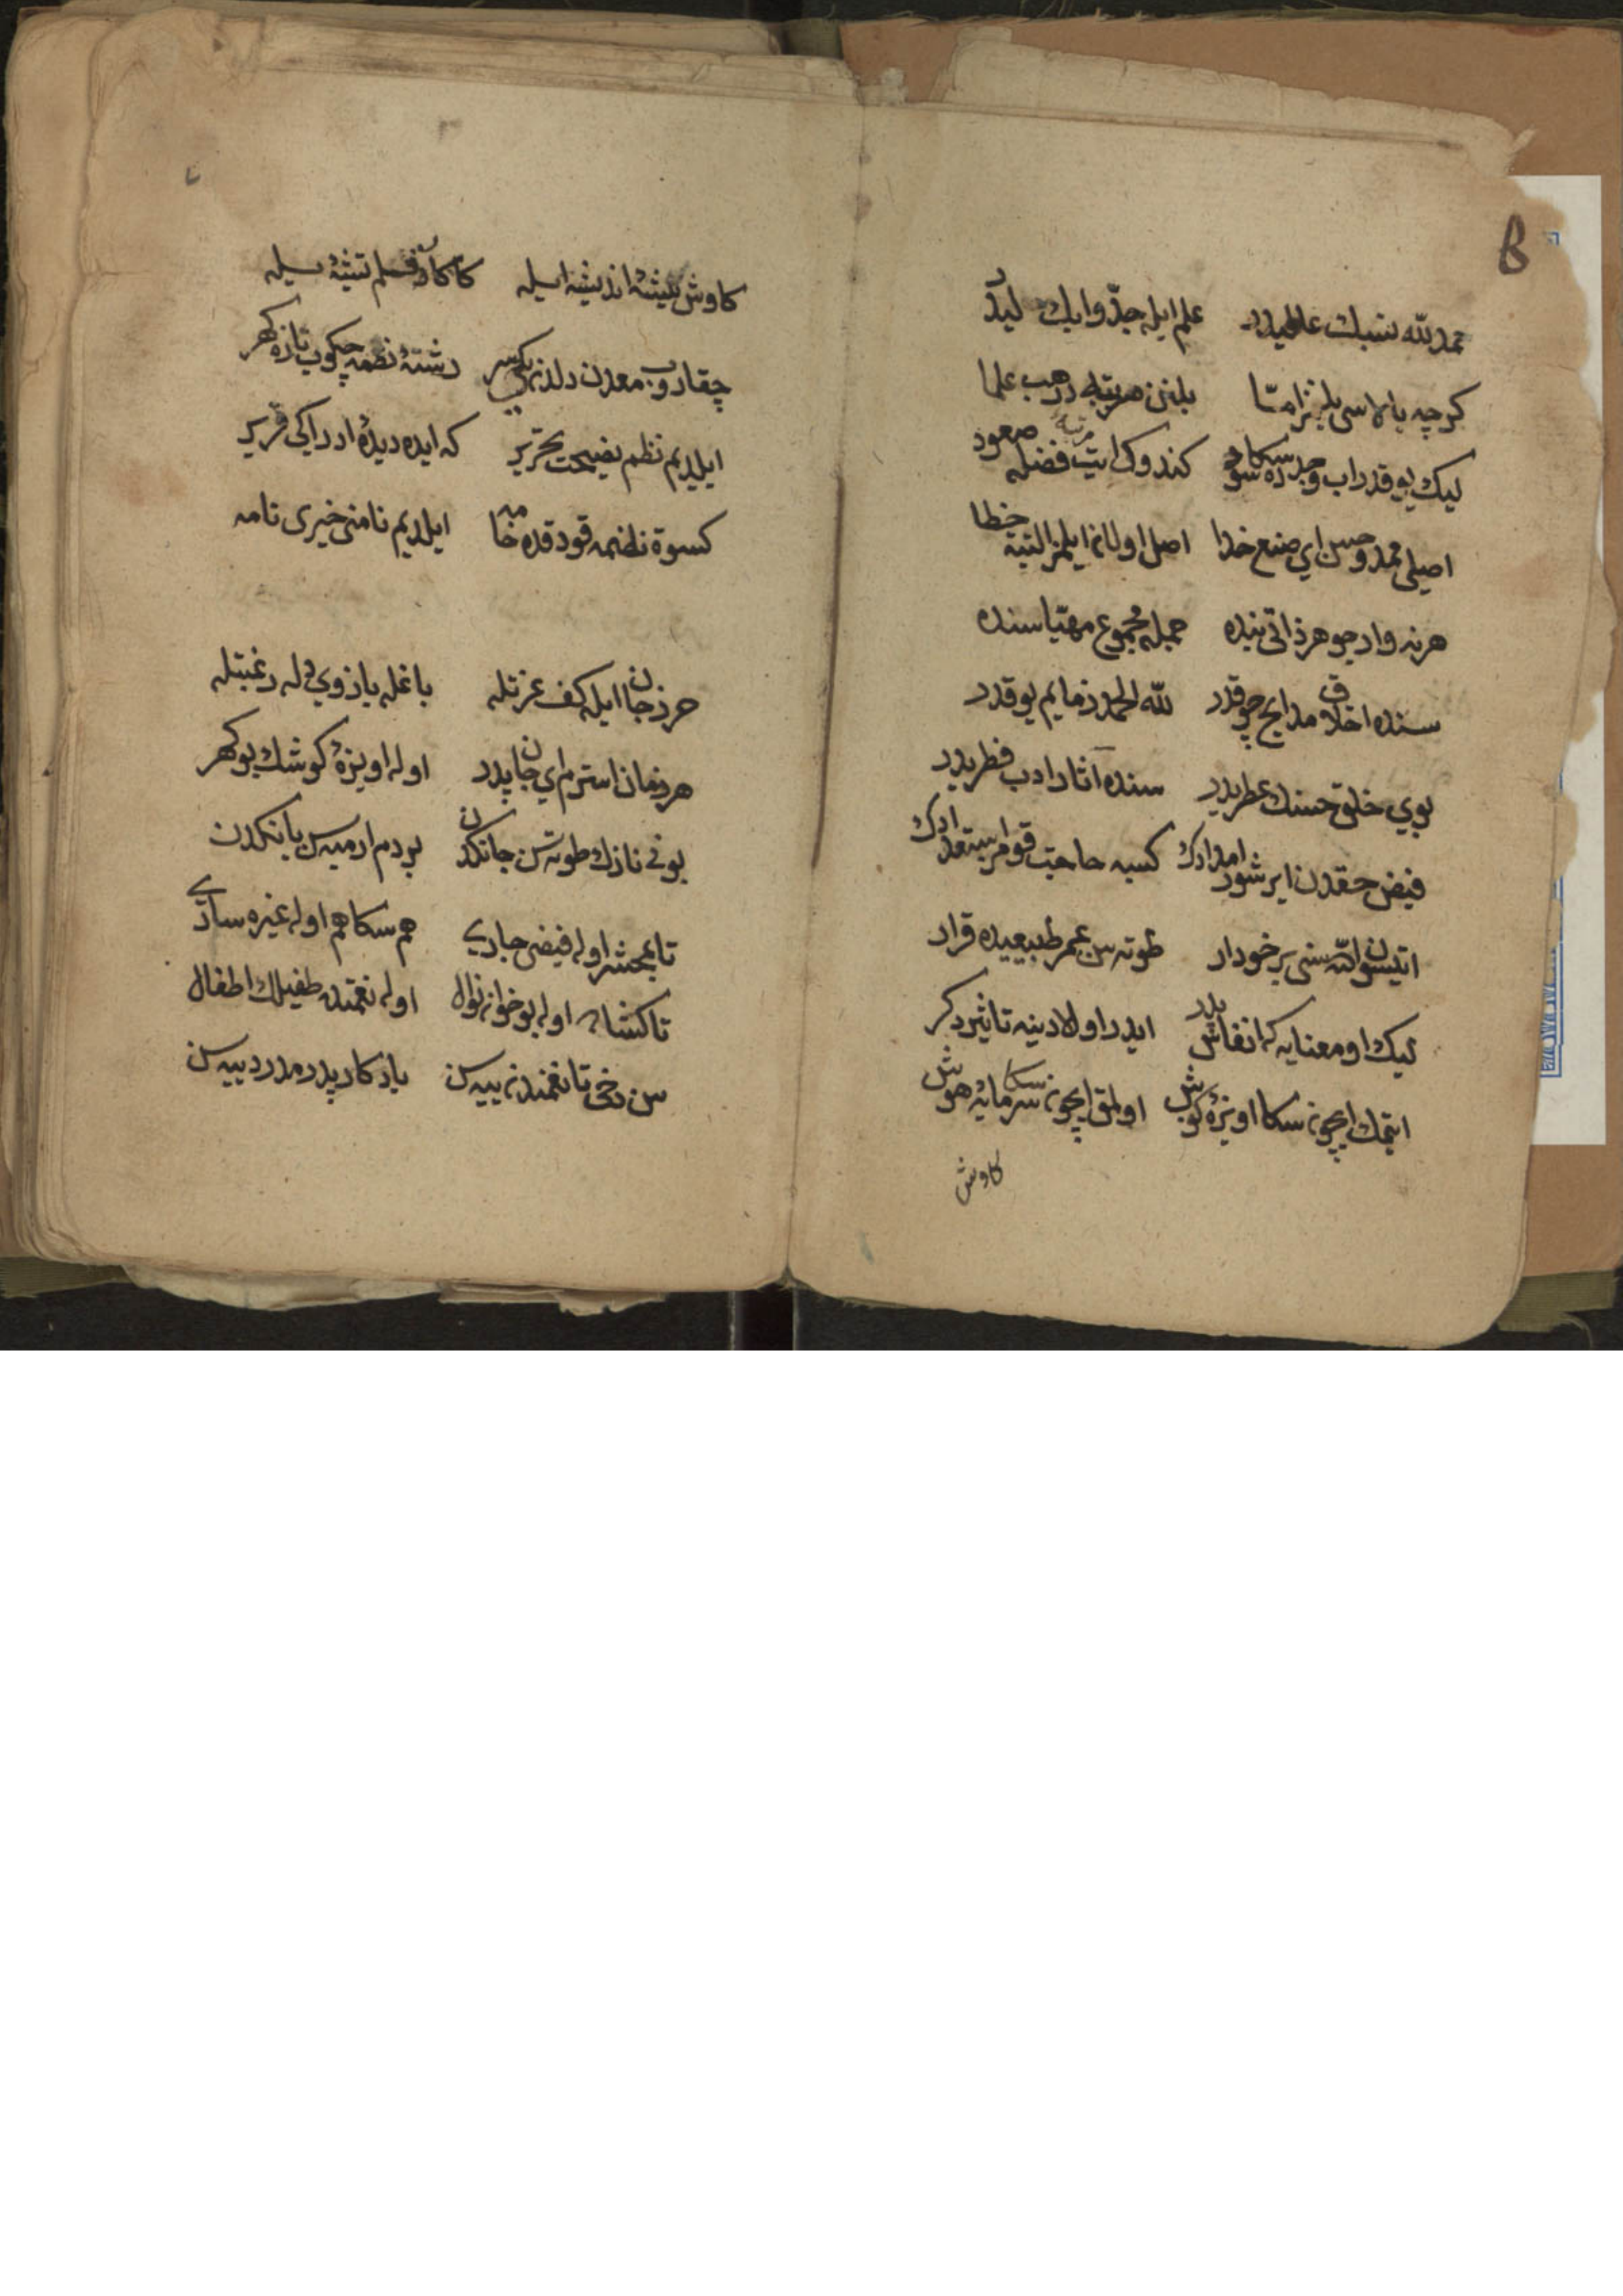 حمد لله نسبك عالیدر علم ایله جدّ و ابك لیدر
كرچه بالاسی بلنمز امّا بلنن مرتبه در هب علما
لیك یوقدر اب و جددن سكا سود كندوك ایت مرتبه فضله صعود
اصلی محمد و حسن ای صنع خدا اصل اولانم ایلمز البته خطا
هر نه وار جوهر ذاتی بنده جمله مجموع مهیّا سنده
سنده اخلاق مدایح چوقدر لله الحمد ذمایم یوقدر
بوی خلق حسنك عطریدر سنده آثار ادب فطریدر
فیض حقدن ایریشور امدادك كسبه حاجت قومز استعدادك
ایتسون الله سنی برخوردار طوته سن عمر طبیعیده قرار
لیك او معنایه كه انفاس پدر ایدر اولادینه تاثیر دكر
ایتمك ایچون سكا آویزهٔ كوش اولمق ایچون سكا سرمایهٔ هوش
كاوش
كاوش تیشهٔ اندیشه ایله كاه كاه قلم تیشه سیله
چقاروب معدن دلدن یكسر رشتهٔ نظمه چكوب تازه كهر
ایلدم نظم نصیحت تحریر كه ایده دیدهٔ ادراكی قریر
كسوة نظمه قودقده خامه ایلدیم نامنی خیری نامه
حرز جان ایله كف عزتله باغله بازوی دله رغبتله
هر زمان استرم ای جان پدر اوله آویزهٔ كوشك بو كهر
بونی نازك طوته سن جانكدن بر دم ایرمیه سن یانكدن
تا بمحشر اوله فیضی جاری هم سكا هم اوله غیره ساری
تا كشاده اوله بو خوان نوال اوله نعمتده طفیلك اطفال
سن دخی تا نعمندن ییه سن یادكار پدرمدر دییه سن